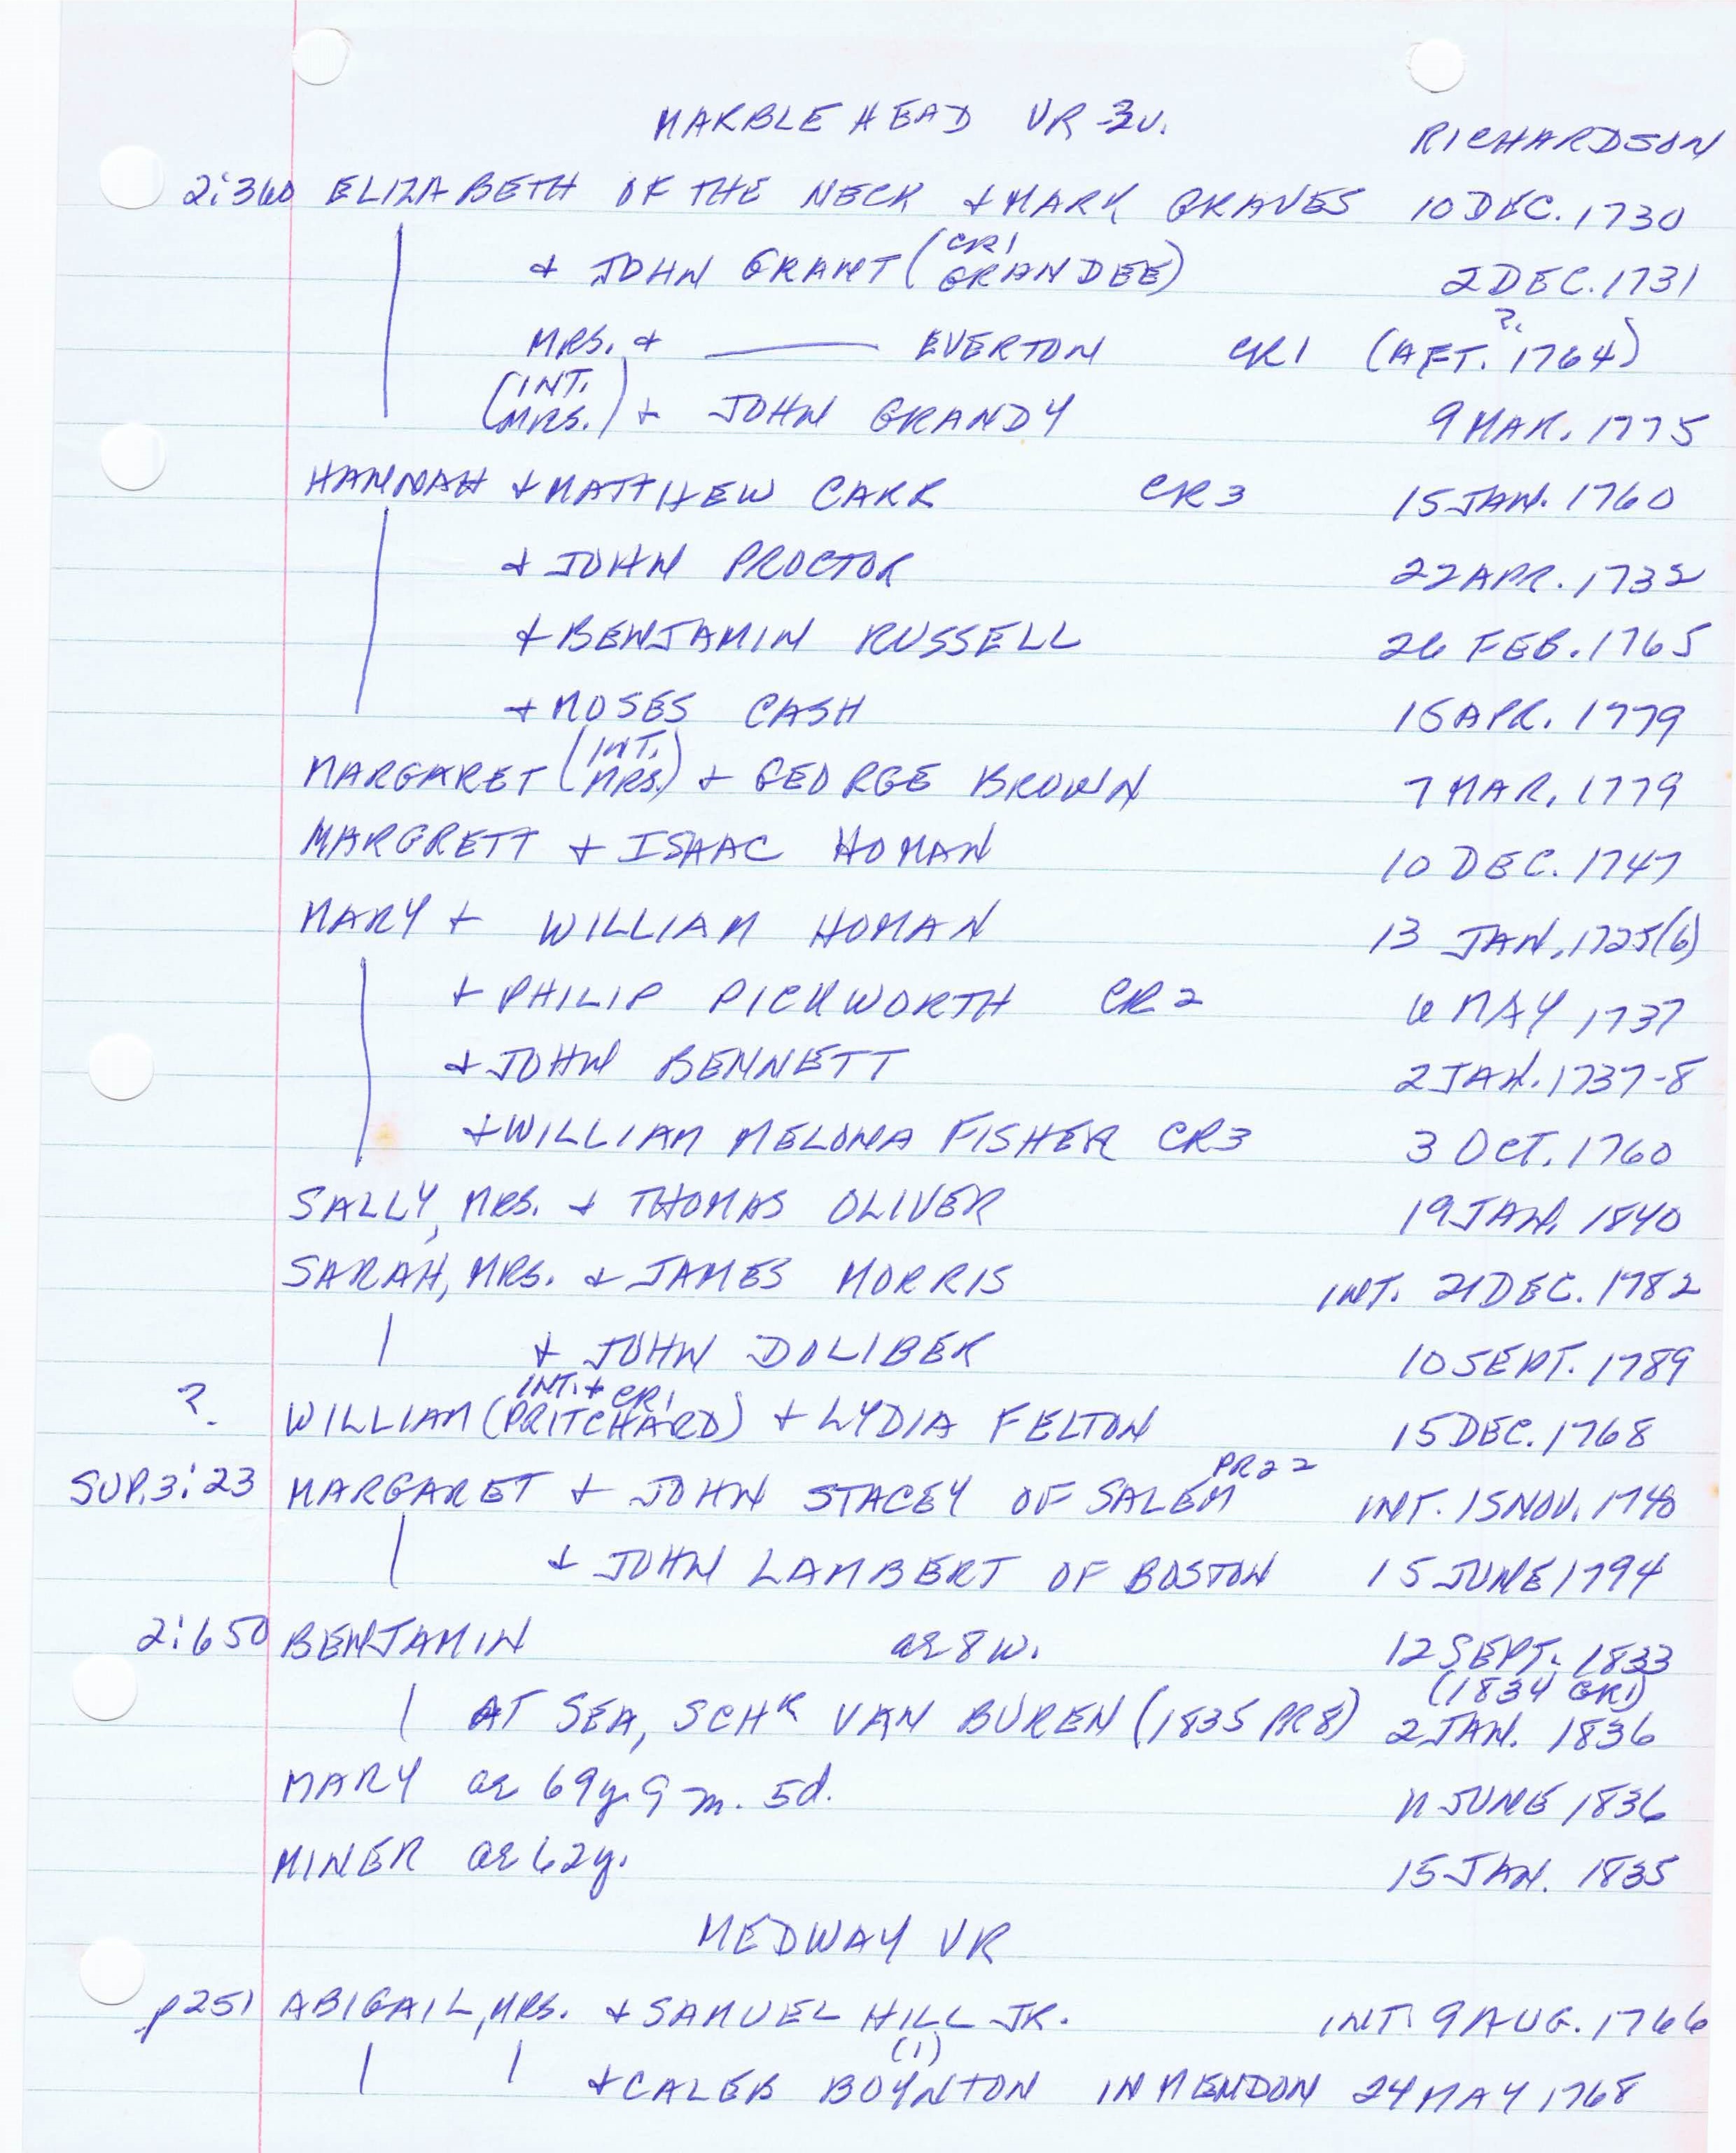 MARBLEHEAD VR 3v. RICHARDSON
2:360 ELIZABETH OF THE NECK + MARK GRAVES 10 DEC. 1730
+ JOHN GRANT (CR1 GRANDEE) 2 DEC. 1731
MRS. + —— EVERTON CR1 (AFT. ?. 1764)
(INT. MRS.) + JOHN GRANDY 9 MAR. 1775
HANNAH + MATTHEW CARR CR3 15 JAN. 1760
+ JOHN PROCTOR 22 APR. 1732
+ BENJAMIN RUSSELL 26 FEB. 1765
+ MOSES CASH 15 APR. 1779
MARGARET (INT. MRS.) + GEORGE BROWN 7 MAR. 1779
MARGRETT + ISAAC HOMAN 10 DEC. 1747
MARY + WILLIAM HOMAN 13 JAN. 1725(6)
+ PHILIP PICKWORTH CR2 6 MAY 1737
+ JOHN BENNETT 2 JAN. 1737-8
+ WILLIAM MELONA FISHER CR3 3 OCT. 1760
SALLY, MRS. + THOMAS OLIVER 19 JAN. 1840
SARAH, MRS. + JAMES MORRIS INT. 21 DEC. 1782
+ JOHN DOLIBER 10 SEPT. 1789
?. WILLIAM (INT. + CR1 PRITCHARD) + LYDIA FELTON 15 DEC. 1768
SUP. 3:23 MARGARET + JOHN STACEY OF SALEM PR22 INT. 15 NOV. 1740
+ JOHN LAMBERT OF BOSTON 15 JUNE 1794
2:650 BENJAMIN ae 8 w. 12 SEPT. 1833
(1834 GR1)
AT SEA, SCHR VAN BUREN (1835 PR8) 2 JAN. 1836
MARY ae 69y. 9 m. 5d. 11 JUNE 1836
MINER ae 62y. 15 JAN. 1835
MEDWAY VR
p251 ABIGAIL, MRS. + SAMUEL HILL JR. INT. 9 AUG. 1766
+ CALEB BOYNTON (1) IN MENDON 24 MAY 1768